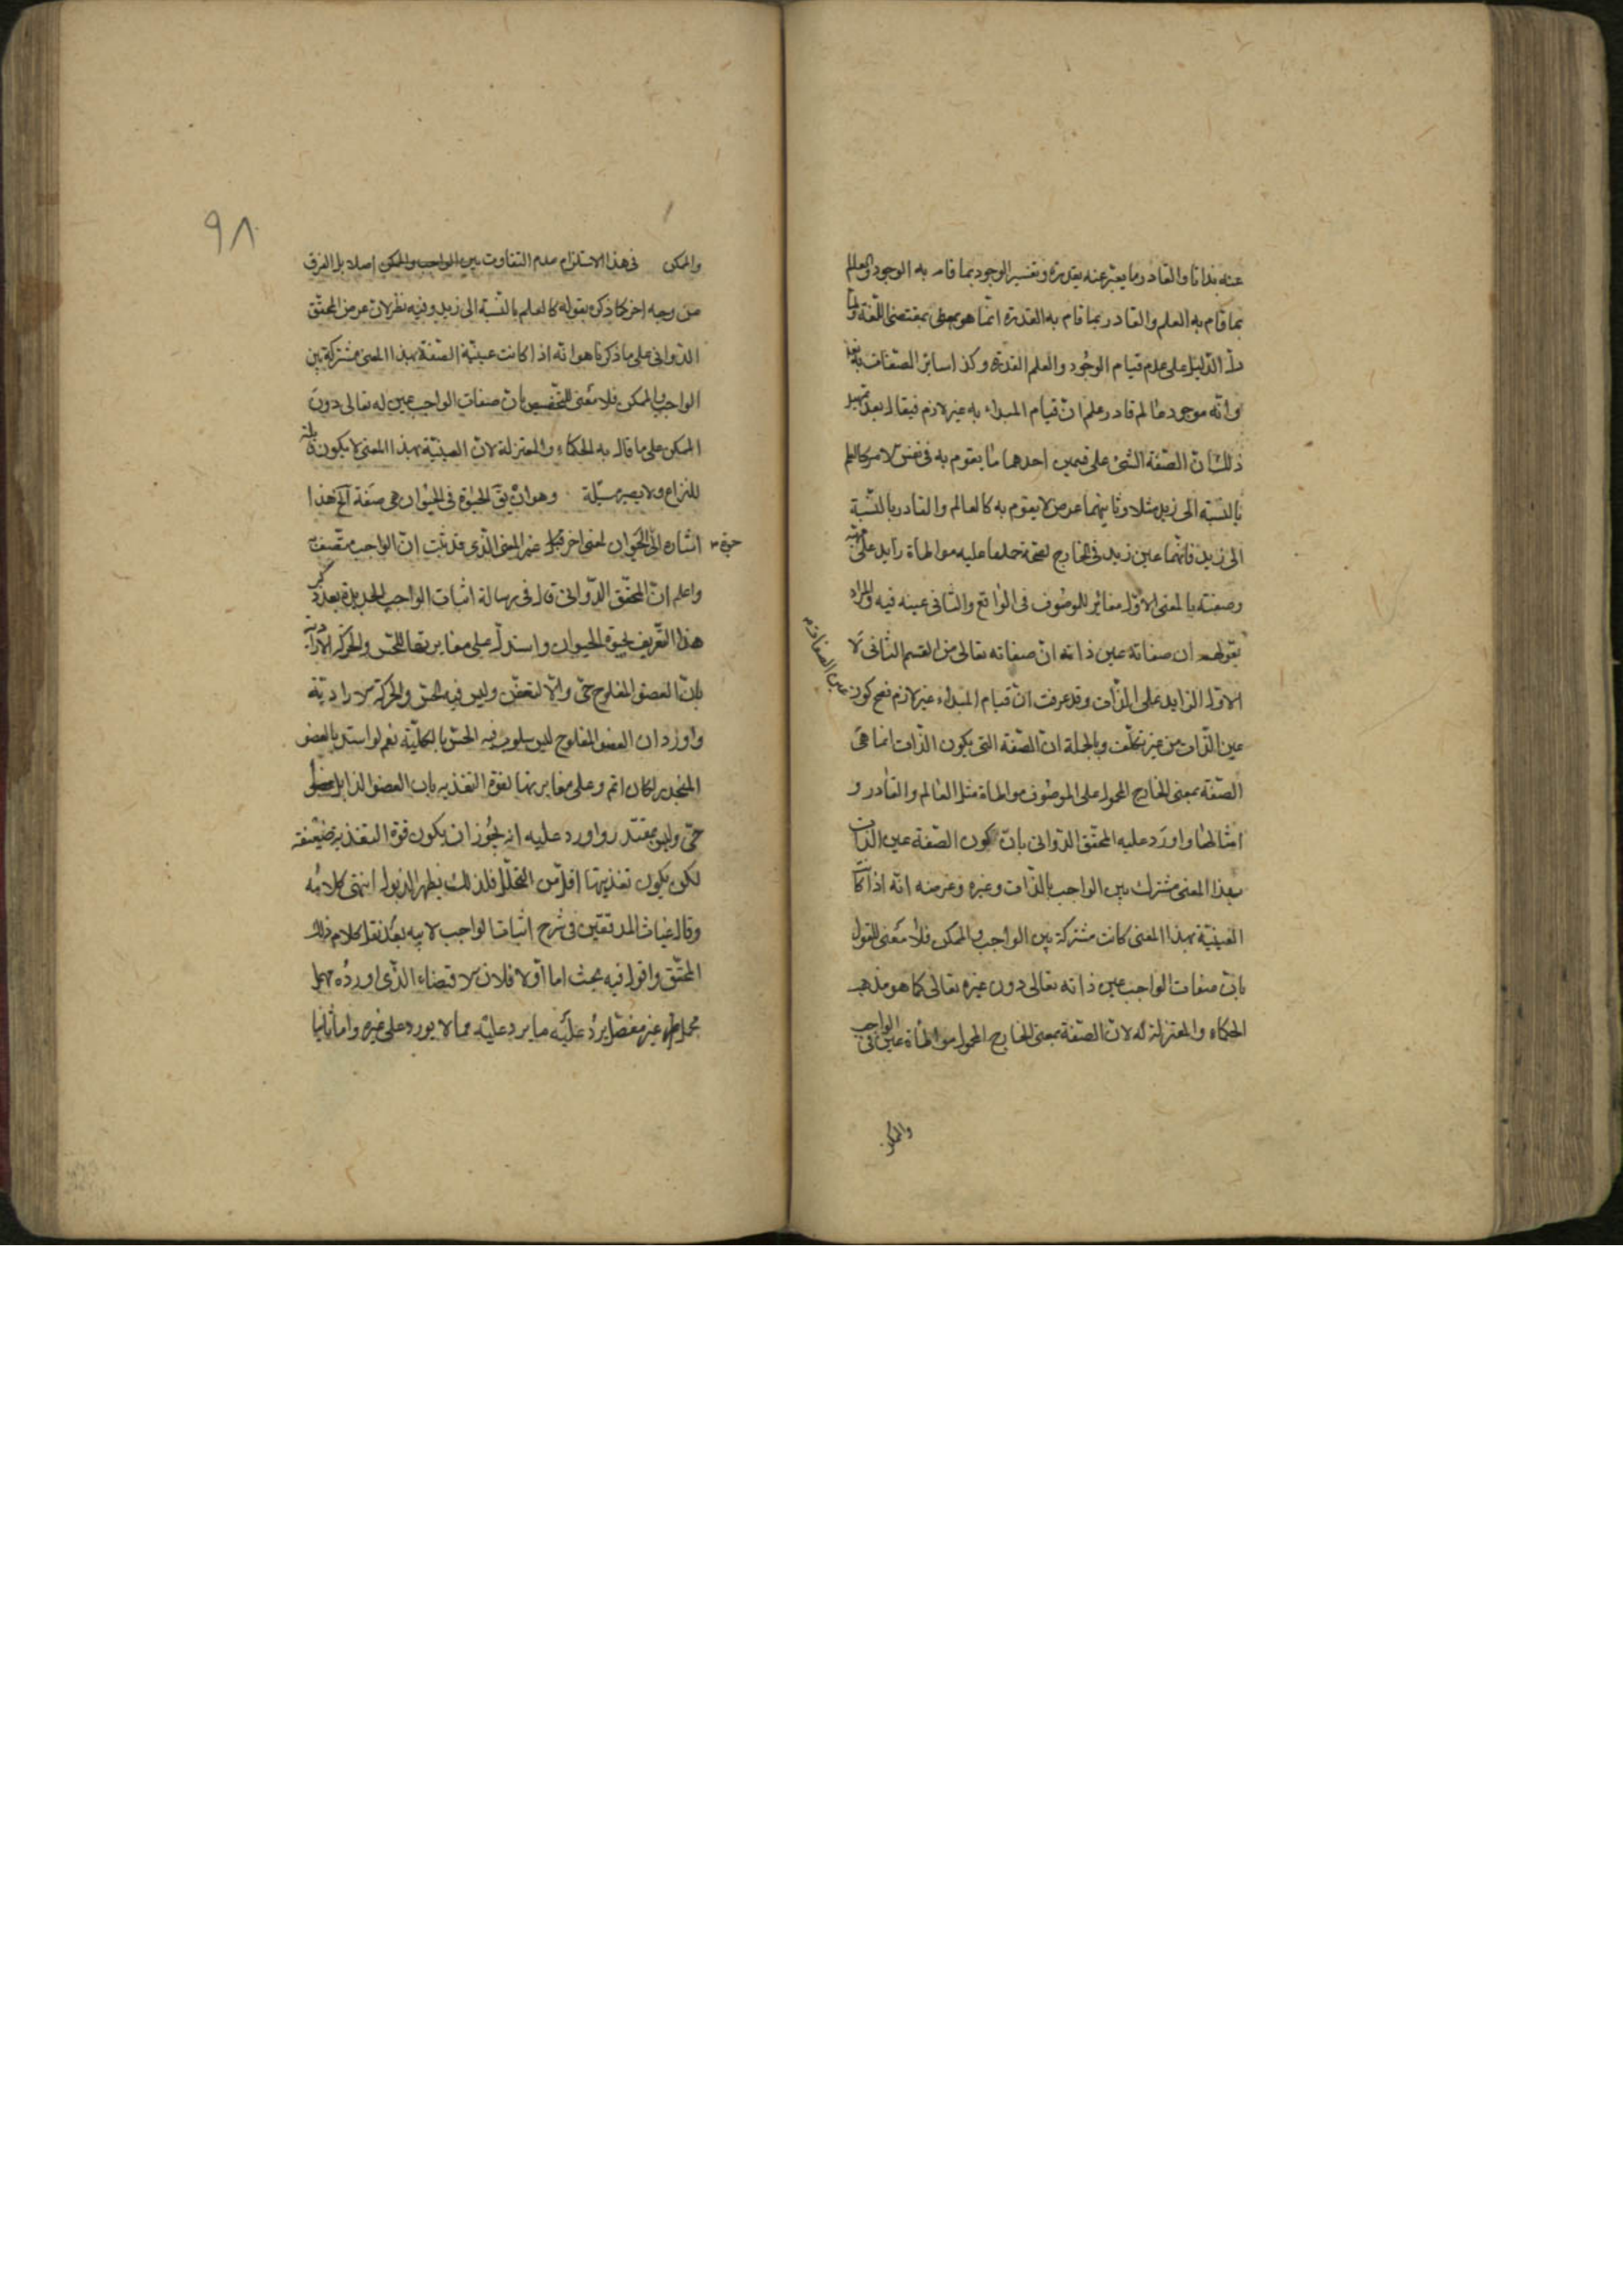 عنه بدانا والقادر وما يعبر عنه بقدرة وتفسير الوجود بما قام به الوجود والعالم
بما قام به العلم والقادر بما قام به القدرة انما هو بمقتضى اللغة ولما
دل الدليل على عدم قيام الوجود والعلم القدرة وكذا سائر الصفات به تعالى
وانه موجود عالم قادر علم ان قيام المبداء به غير لازم فيقال بعد تمهيد
ذلك ان الصفة الشئ على قسمين احدهما ما يقوم به فى نفس الامر كالعلم
بالنسبة الى زيد مثلا وثانيهما عرض لا يقوم به كالعالم والقادر بالنسبة
الى زيد فانهما عين زيد فى الخارج لصحة حملهما عليه مواطاة زايد على
وصفته بالمعنى الاول مغاير للموصوف فى الواقع والثانى عينه فيه والمراد
بقولهم ان صفاته عين ذاته ان صفاته تعالى من القسم الثانى لا
الاول الزايد على الذات وقد عرفت ان قيام المبداء غير لازم فصح كون
عين الصفات
عين الذات من غير تكلف وبالجملة ان الصفة التى يكون الذات انما هى
الصفة بمعنى الخارج المحمول على الموصوف مواطاة مثل العالم والقادر و
امثالهما واورد عليه المحقق الدوانى بان كون الصفة عين الذات
بهذا المعنى مشترك بين الواجب بالذات وغيره وغرضه انه اذا كا
العينية بهذا المعنى كانت مشتركة بين الواجب والممكن فلا معنى للقول
بان صفات الواجب عين ذاته تعالى دون غيره تعالى كما هو مذهب
الحكماء والمعتزلة له لان الصفة بمعنى الخارج المحمول مواطاة عين فى الواجب
والممكن
٩٨
والممكن فى هذا الاستلزام عدم التفاوت بين الواجب والممكن اصلا بل الفرق
من وجه اخر كما ذكره بقوله كالعلم بالنسبة الى زيد وفيه نظر لان غرض المحقق
الدوانى على ما ذكرنا هو انه اذا كانت عينية الصفة بهذا المعنى مشتركة بين
الواجب والممكن فلا معنى للتخصيص بان صفات الواجب عين له تعالى دون
الممكن على ما قال به الحكماء والمعتزلة لان العينية بهذا المعنى لا يكون قابلة
للنزاع ولا يصير مسئلة وهو ان يق الحيوة فى الحيوان هى صفة آلخ هذا
اشاره الى حيوة الحيوان لمعنى اخر غير المعنى الذى قد ثبت ان الواجب متصف به
واعلم ان المحقق الدوانى قال فى رسالة اثبات الواجب الجديدة بعد ذكر
هذا التعريف لحيوة الحيوان واستدل على مغايرتها للحس والحركة الارادية
بان العضو المفلوج حى والا لتعفن وليس فيه الحس والحركة الارادية
واورد ان العضو المفلوج ليس مسلوب فيه الحس بالكلية نعم لو استدل بالعضو
المخدر لكان اتم وعلى مغايرتها لقوة التغذيه بان العضو الذابل
حى وليس بمغتذ واورد عليه انه يجوز ان يكون قوة التغذيه ضعيفة
لكن يكون تغذيتها اقل من التحلل فلذلك يظهر الذبول انتهى كلامه
وقال غياث المدققين فى شرح اثبات الواجب لابيه بعد نقل كلام ذلك
المحقق واقول فيه بحث اما اولا فلان الاقتضاء الذى اورده مهمل
مجمل غير مفصل يرد عليه ما يرد عليه مما لا يورد على غيره واما ثانيا